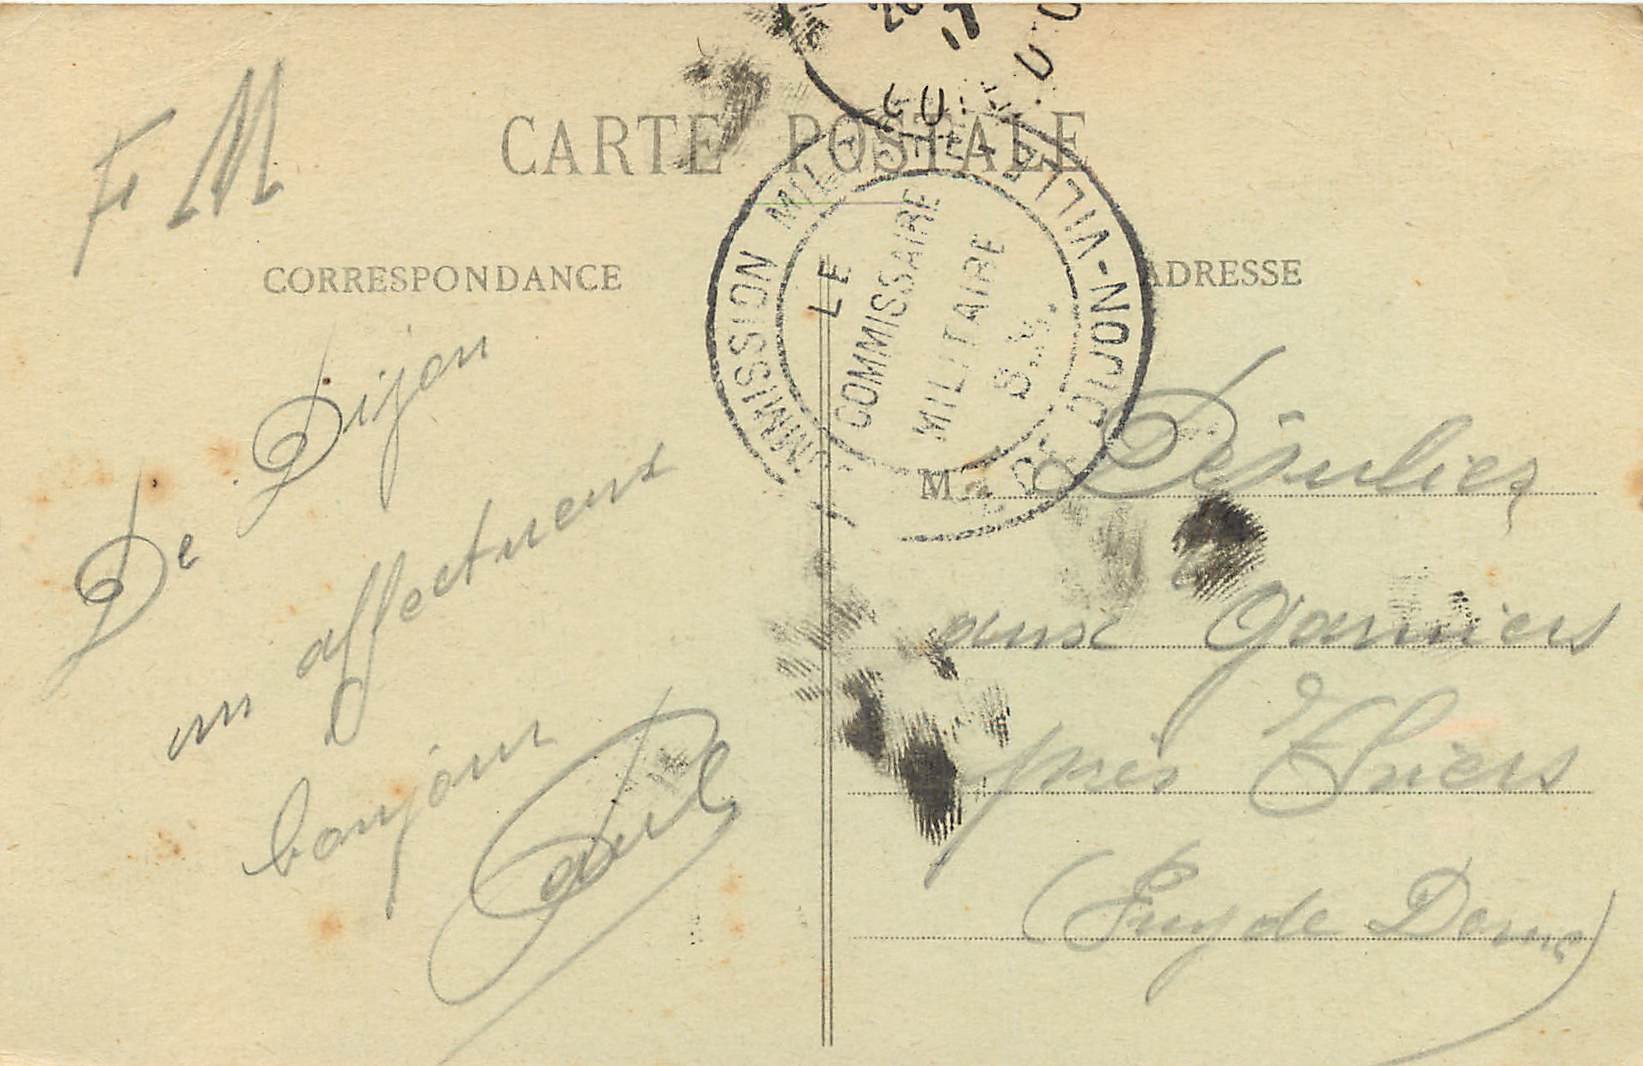 F M
CARTE POSTALE
CORRESPONDANCE
ADRESSE
De Dijon
un affectueux
bonjour
Paul
MMISSION MILITAIRE DE DIJON-VILLE
LE
COMMISSAIRE
MILITAIRE
S.M.
M
aux Garniers
près Thiers
(Puy de Dome)